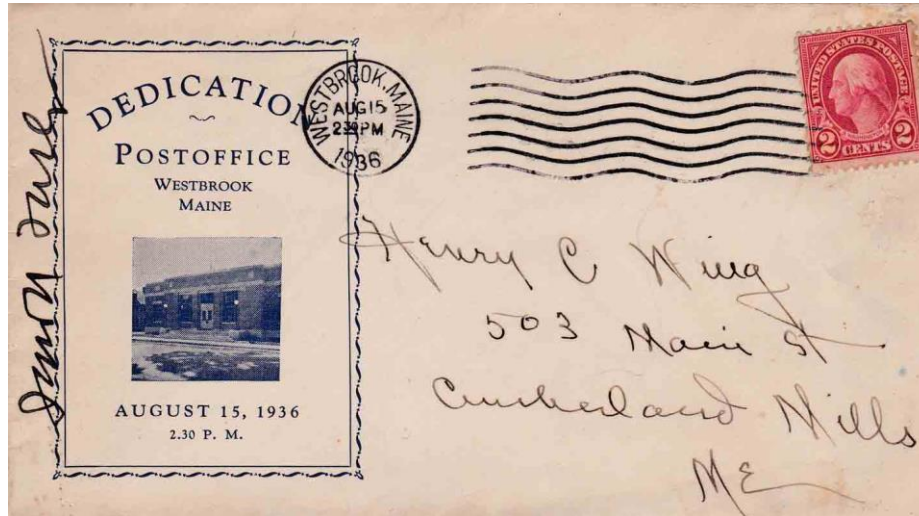 DEDICATION
POSTOFFICE
WESTBROOK
MAINE
AUGUST 15, 1936
2.30 P. M.
WESTBROOK. MAINE
AUG 15
2 30 PM
1936
UNITED STATES POSTAGE
2 CENTS 2
Henry C Wing
503 Main St
Cumberland Mills
ME